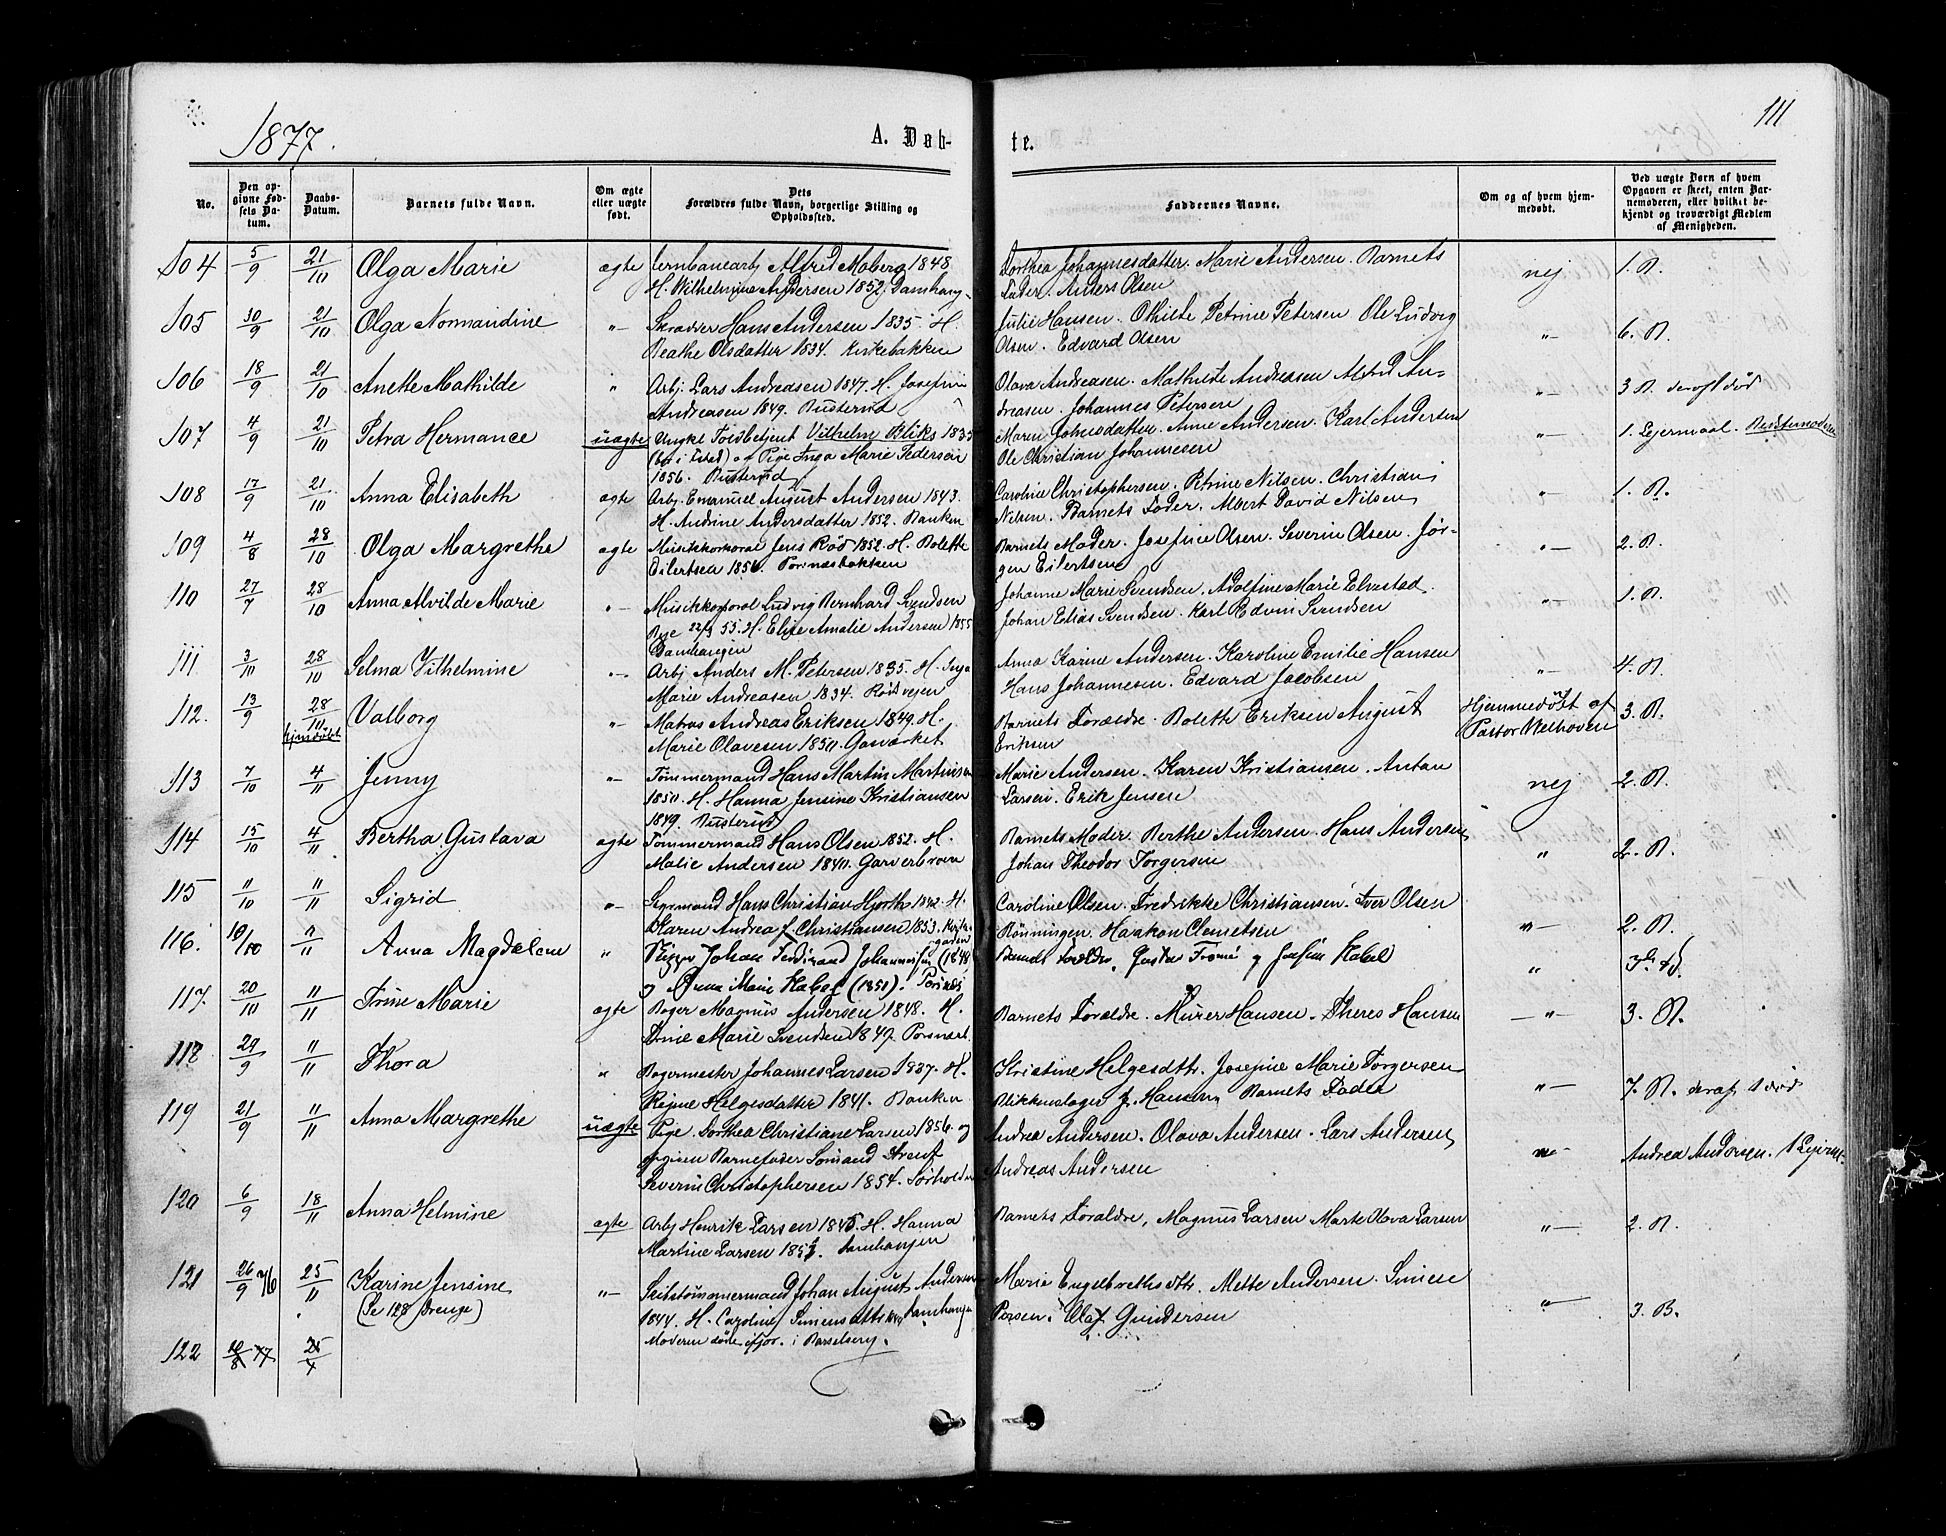 1877.
A. Døb-
te.
111
No.
Den op-
givne Fød-
sels Da-
tum.
Daabs-
Datum.
Barnets fulde Navn.
Om ægte
eller uægte
født.
Dets
Forældres fulde Navn, borgerlige Stilling og
Opholdssted.
Faddernes Navne.
Om og af hvem hjem-
medøbt.
Ved uægte Børn af hvem
Opgaven er skeet, enten Bar-
nemoderen, eller hvilket be-
kjendt og troværdigt Medlem
af Menigheden.
104 5/9 21/10 Olga Marie ægte Jernbanearbj Alfred Moberg 1848 Dorthea Johannesdatter. Marie Andersen. Barnets nej 1. B.
H. Wilhelmine Andersen 1852. Damhaug- Fader. Anders Olsen
105 30/9 21/10 Olga Normandine "- Skrædder Hans Andersen 1835. H. Julie Hansen. Othilde Petrine Petersen Ole Ludvig "- 6. B.
Beathe Olsdatter 1834. Kirkebakken Olsen. Edvard Olsen
106 18/9 21/10 Anette Mathilde " Arbj. Lars Andreasen 1847. H. Josefine Olava Andreasen. Mathilde Andreasen Alfred An- "- 3 B. deraf 1 død
Andreasen 1849. Busterud dreasen. Johannes Petersen
107 4/9 21/10 Petra Hermance uægte Ungkl Toldbetjent Vilhelm Bliks 1835 Maren Johnsdatter. Anne Andersen. Karl Andersen "- 1. Lejermaal.
og Pige Inga Marie Pedersen Ole Christian Johannesen
1856. Busterud
108 17/9 21/10 Anna Elisabeth ægte Arbj. Emanuel August Andersen 1843. Caroline Christophersen. Petrine Nilsen. Christian "- 1. B.
H. Andrine Andersdatter 1852. Banken Nilsen. Barnets Fader. Albert David Nilsen
109 4/8 28/10 Olga Margrethe ægte Musikkorporal Jens Rød 1852. H. Bolette Barnets Moder. Josefine Olsen. Severin Olsen. Jør- "- 2. B.
Eilertsen 1856. Torsnæsbakken gen Eilertsen
110 27/7 28/10 Anna Alvilde Marie "- Musikkorporal Ludvig Bernhard Svendsen Johanne Marie Svendsen. Adolfine Marie Elvestad. "- 1. B.
Bye 22/3 55. H. Elise Amalie Andersen 1855 Johan Elias Svendsen. Karl Edvin Svendsen
Damhaugen
111 3/10 28/10 Selma Vilhelmine "- Arbj Anders M. Petersen 1835. H. Inga Anna Karine Andersen. Karoline Emilie Hansen "- 4. B.
Marie Andreasen 1834. Rødsvejen Hans Johannesen. Edvard Jacobsen
112. 13/9 28/10 Valborg "- Matros Andreas Eriksen 1849. H. Barnets Forældre. Bolette Eriksen August Hjemmedøbt af 3. B.
hjemdøbt Marie Olavesen 1850. Gasværket Eriksen Pastor Welhaven
113 7/10 4/11 Jenny "- Tømmermand Hans Martin Martinsen Marie Andersen. Karen Kristiansen. Anton nej 2. B.
1850. H. Hanna Jensine Kristiansen Larsen. Erik Jensen
1849. Busterud
114 15/10 4/11 Bertha Gustava ægte Tømmermand Hans Olsen 1852. H. Barnets Moder. Berthe Andersen. Hans Andersen " 2. B.
Malie Andersen 1840. Garverbroen Johan Theodor Torgersen
115 11/10 11/11 Sigrid "- Hans Christian Hjorth 1842. H. Caroline Olsen. Fredrikke Christiansen. Iver Olsen "- 2. B.
Karen Andrea f. Christiansen 1853. Rønningen. Haakon Clemetsen
116. 10/10 11/11 Anna Magdalene " Skipper Johan Ferdinand Johannessen (1848) Barnets Forældre, Gustav og Josefine Kabel "
og Anna Marie Kabel (1851). Torsnæs
117. 20/10 11/11 Trine Marie ægte Bager Magnus Andersen 1848. H. Barnets Forældre. Murer Hansen. Theres Hansen "- 3. B.
Trine Marie Svendsen 1849. Torsnæs
118 29/9 11/11 Thora " Bagermester Johannes Larsen 1837. H. Kristine Helgesdtr. Josefine Marie Torgersen "- 7. B. deraf 1 død
Regine Helgesdatter 1841. Banken Blikkenslager J. Hansen. Barnets Fader
119 21/9 11/11 Anna Margrethe uægte Pige Dorthea Christiane Larsen 1856. og Andrea Andersen. Olava Andersen. Lars Andersen "- Andrea Andersen. 1 Lejerm.
opgiven Barnefader Sømand Arent Andreas Andersen
Severin Christophersen 1854. Sørholdn
120 6/9 18/11 Anna Helmine ægte Arbj Henrik Larsen 1845. H. Hanna Barnets Forældre, Magnus Larsen Marte Olava Larsen "- 2. B.
Martine Larsen 1851. Damhaugen
121 26/9 76 25/11 Karine Jensine "- Skibstømmermand Johan August Andersen Marie Engelbrethsdtr. Mette Andersen. Simen "- 3. B.
(Se 128 Drenge) 1844. H. Caroline Simensdtr 1849 Damhaugen Olaf Gundersen
Moderen døde ifjor. i Barselseng.
122 10/8 77 25/